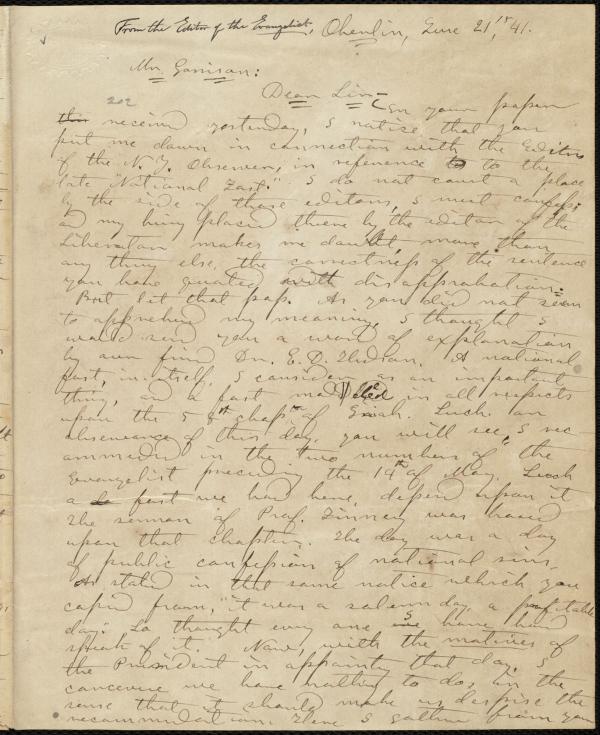 From the Editor of the Evangelist. Oberlin, June 21st, 41.
Mr. Garrison:
202
Dear Sir - In your paper
this received yesterday, I notice that you
put me down in connection with the Editors
of the N. Y. Observer, in reference to to the
late "National Fast." I do not court a place
by the side of those editors, I must confess;
and my being placed there by the editor of the
Liberator makes me doubt, more than
any thing else, the correctness of the sentence
you have quoted with disapprobation.
But let that pass. As you did not seem
to apprehend my meaning, I thought I
would send you a word of explanation
by our friend Dr. E. D. Hudson. A national
fast, in itself, I consider as an important
thing, and a fast modelled in all respects
upon the 58th chap. of Isaiah. Such an
observance of this day, you will see, I rec-
ommended in the two numbers of the
Evangelist preceding the 14th of May. Such
a fast we had here, depend upon it
The sermon of Prof. Finney was based
upon that chapter. The day was a day
of public confession of national sins.
As stated in that same notice which you
copied from, "it was a solemn day, a profitable
day." So thought every one I have heard
speak of it. Now, with the motives of
the President in appointing that day, I
conceive we have nothing to do, in the
sense that it should make us despise the
recommendation. Here I gather from you